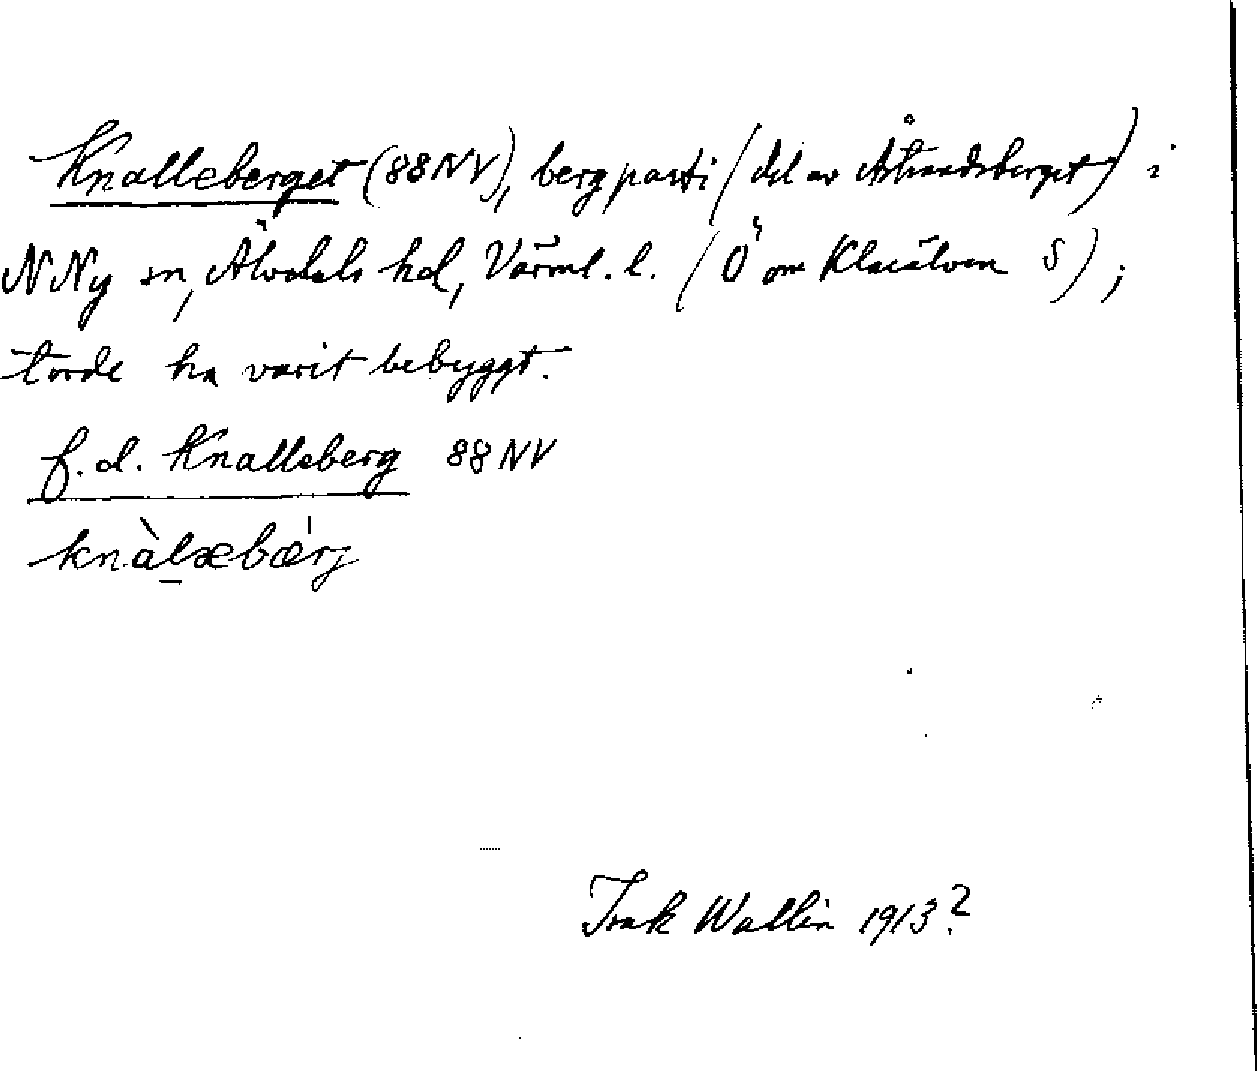 Knalleberget (88NV), bergparti (del av Åstrandsberget) i
N Ny sn, Älvdals hd, Värml. l. (Ö om Klarälven S);
torde ha varit bebyggt.
f.d. Knalleberg 88NV
knàḻæbæ̍rj
Isak Wallin 1913?